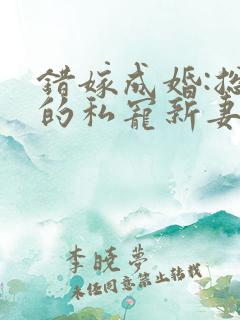 錯嫁成婚:總
的私寵新妻
李曉夢
未經同意禁止轉載